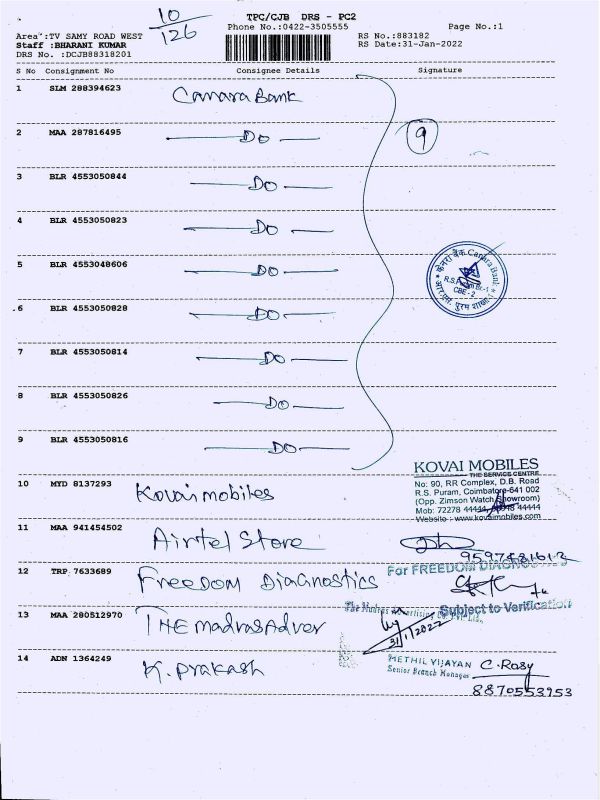 10
126
TPC/CJB DRS - PC2
Phone No.:0422-3505555
Page No.:1
Area :TV SAMY ROAD WEST
Staff :BHARANI KUMAR
DRS No. :DCJB88318201
RS No.:883182
RS Date:31-Jan-2022
S No Consignment No Consignee Details Signature
1 SLM 288394623 Canara Bank
2 MAA 287816495 DO
9
3 BLR 4553050844 DO
4 BLR 4553050823 DO
5 BLR 4553048606 DO
केनरा बैंक Canara Bank
R.S.Puram Br.-1
CBE - 2
आर.एस. पुरम शाखा
6 BLR 4553050828 DO
7 BLR 4553050814 DO
8 BLR 4553050826 DO
9 BLR 4553050816 DO
KOVAI MOBILES
THE SERVICE CENTRE
No: 90, RR Complex, D.B. Road
R.S. Puram, Coimbatore-641 002
(Opp. Zimson Watch Showroom)
Mob: 72278 44444, 44444
Website : www.kovaimobiles.com
10 MYD 8137293 Kovai mobiles
11 MAA 941454502 Airtel Store
12 TRP 7633689 Freedom Diagnostics
For FREEDOM DIAGNOSTICS
13 MAA 280512970 THE madras Adver
Subject to Verification
31/1/2022
14 ADN 1364249 K. Prakash
METHIL VIJAYAN
Senior Branch Manager
C. Rosy
8870553953